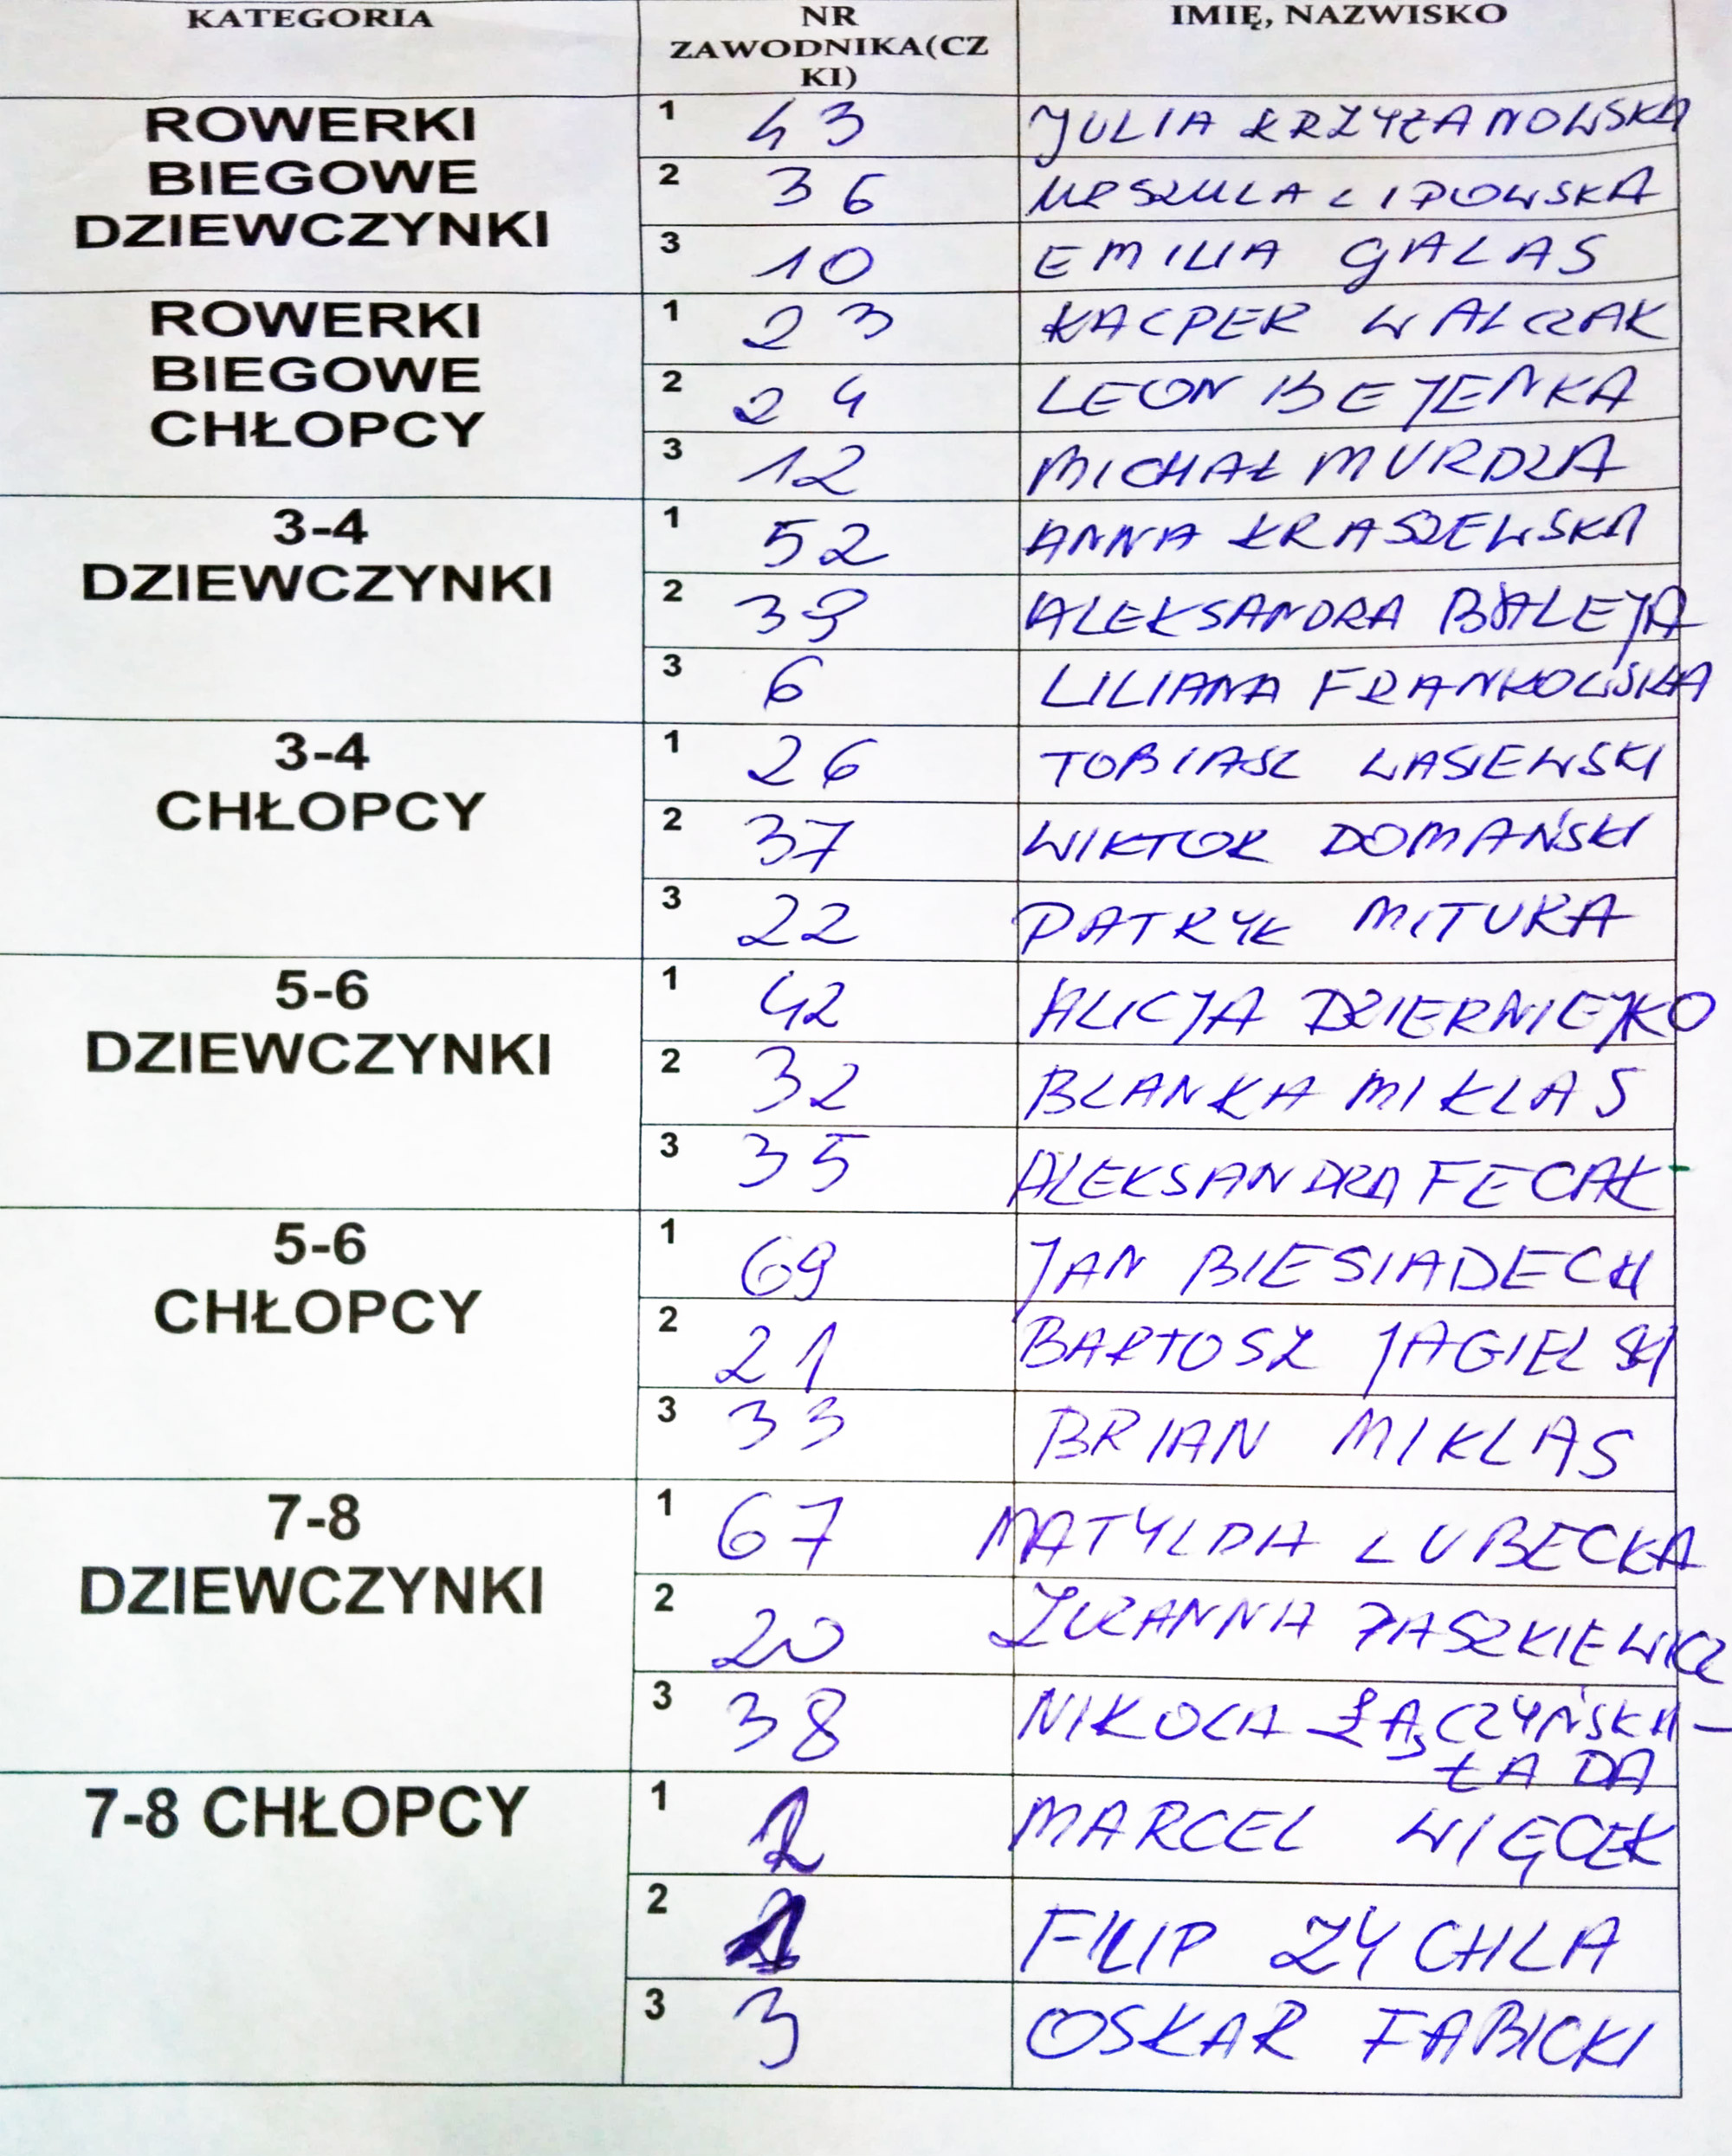 KATEGORIA
NR
ZAWODNIKA(CZ
KI)
IMIĘ, NAZWISKO
ROWERKI
BIEGOWE
DZIEWCZYNKI
1 43 JULIA KRZYŻANOWSKA
2 36 URSZULA LIPOWSKA
3 10 EMILIA GALAS
ROWERKI
BIEGOWE
CHŁOPCY
1 23 KACPER WALCZAK
2 24 LEON BEJENKA
3 12 MICHAŁ MURDZA
3-4
DZIEWCZYNKI
1 52 ANNA KRASZEWSKA
2 39 ALEKSANDRA BALEJA
3 6 LILIANA FRANKOWSKA
3-4
CHŁOPCY
1 26 TOBIASZ WASIEWSKI
2 37 WIKTOR DOMAŃSKI
3 22 PATRYK MITURA
5-6
DZIEWCZYNKI
1 42 ALICJA DZIERNIEJKO
2 32 BLANKA MIKLAS
3 35 ALEKSANDRA FECAK
5-6
CHŁOPCY
1 69 JAN BIESIADECKI
2 21 BARTOSZ JAGIELSKI
3 33 BRIAN MIKLAS
7-8
DZIEWCZYNKI
1 67 MATYLDA LUBECKA
2 20 ZUZANNA PASZKIEWICZ
3 38 NIKOLA ŁĄCZYŃSKA-
ŁADA
7-8 CHŁOPCY
1 2 MARCEL WIĘCEK
2 1 FILIP ZYCHLA
3 3 OSKAR FABICKI